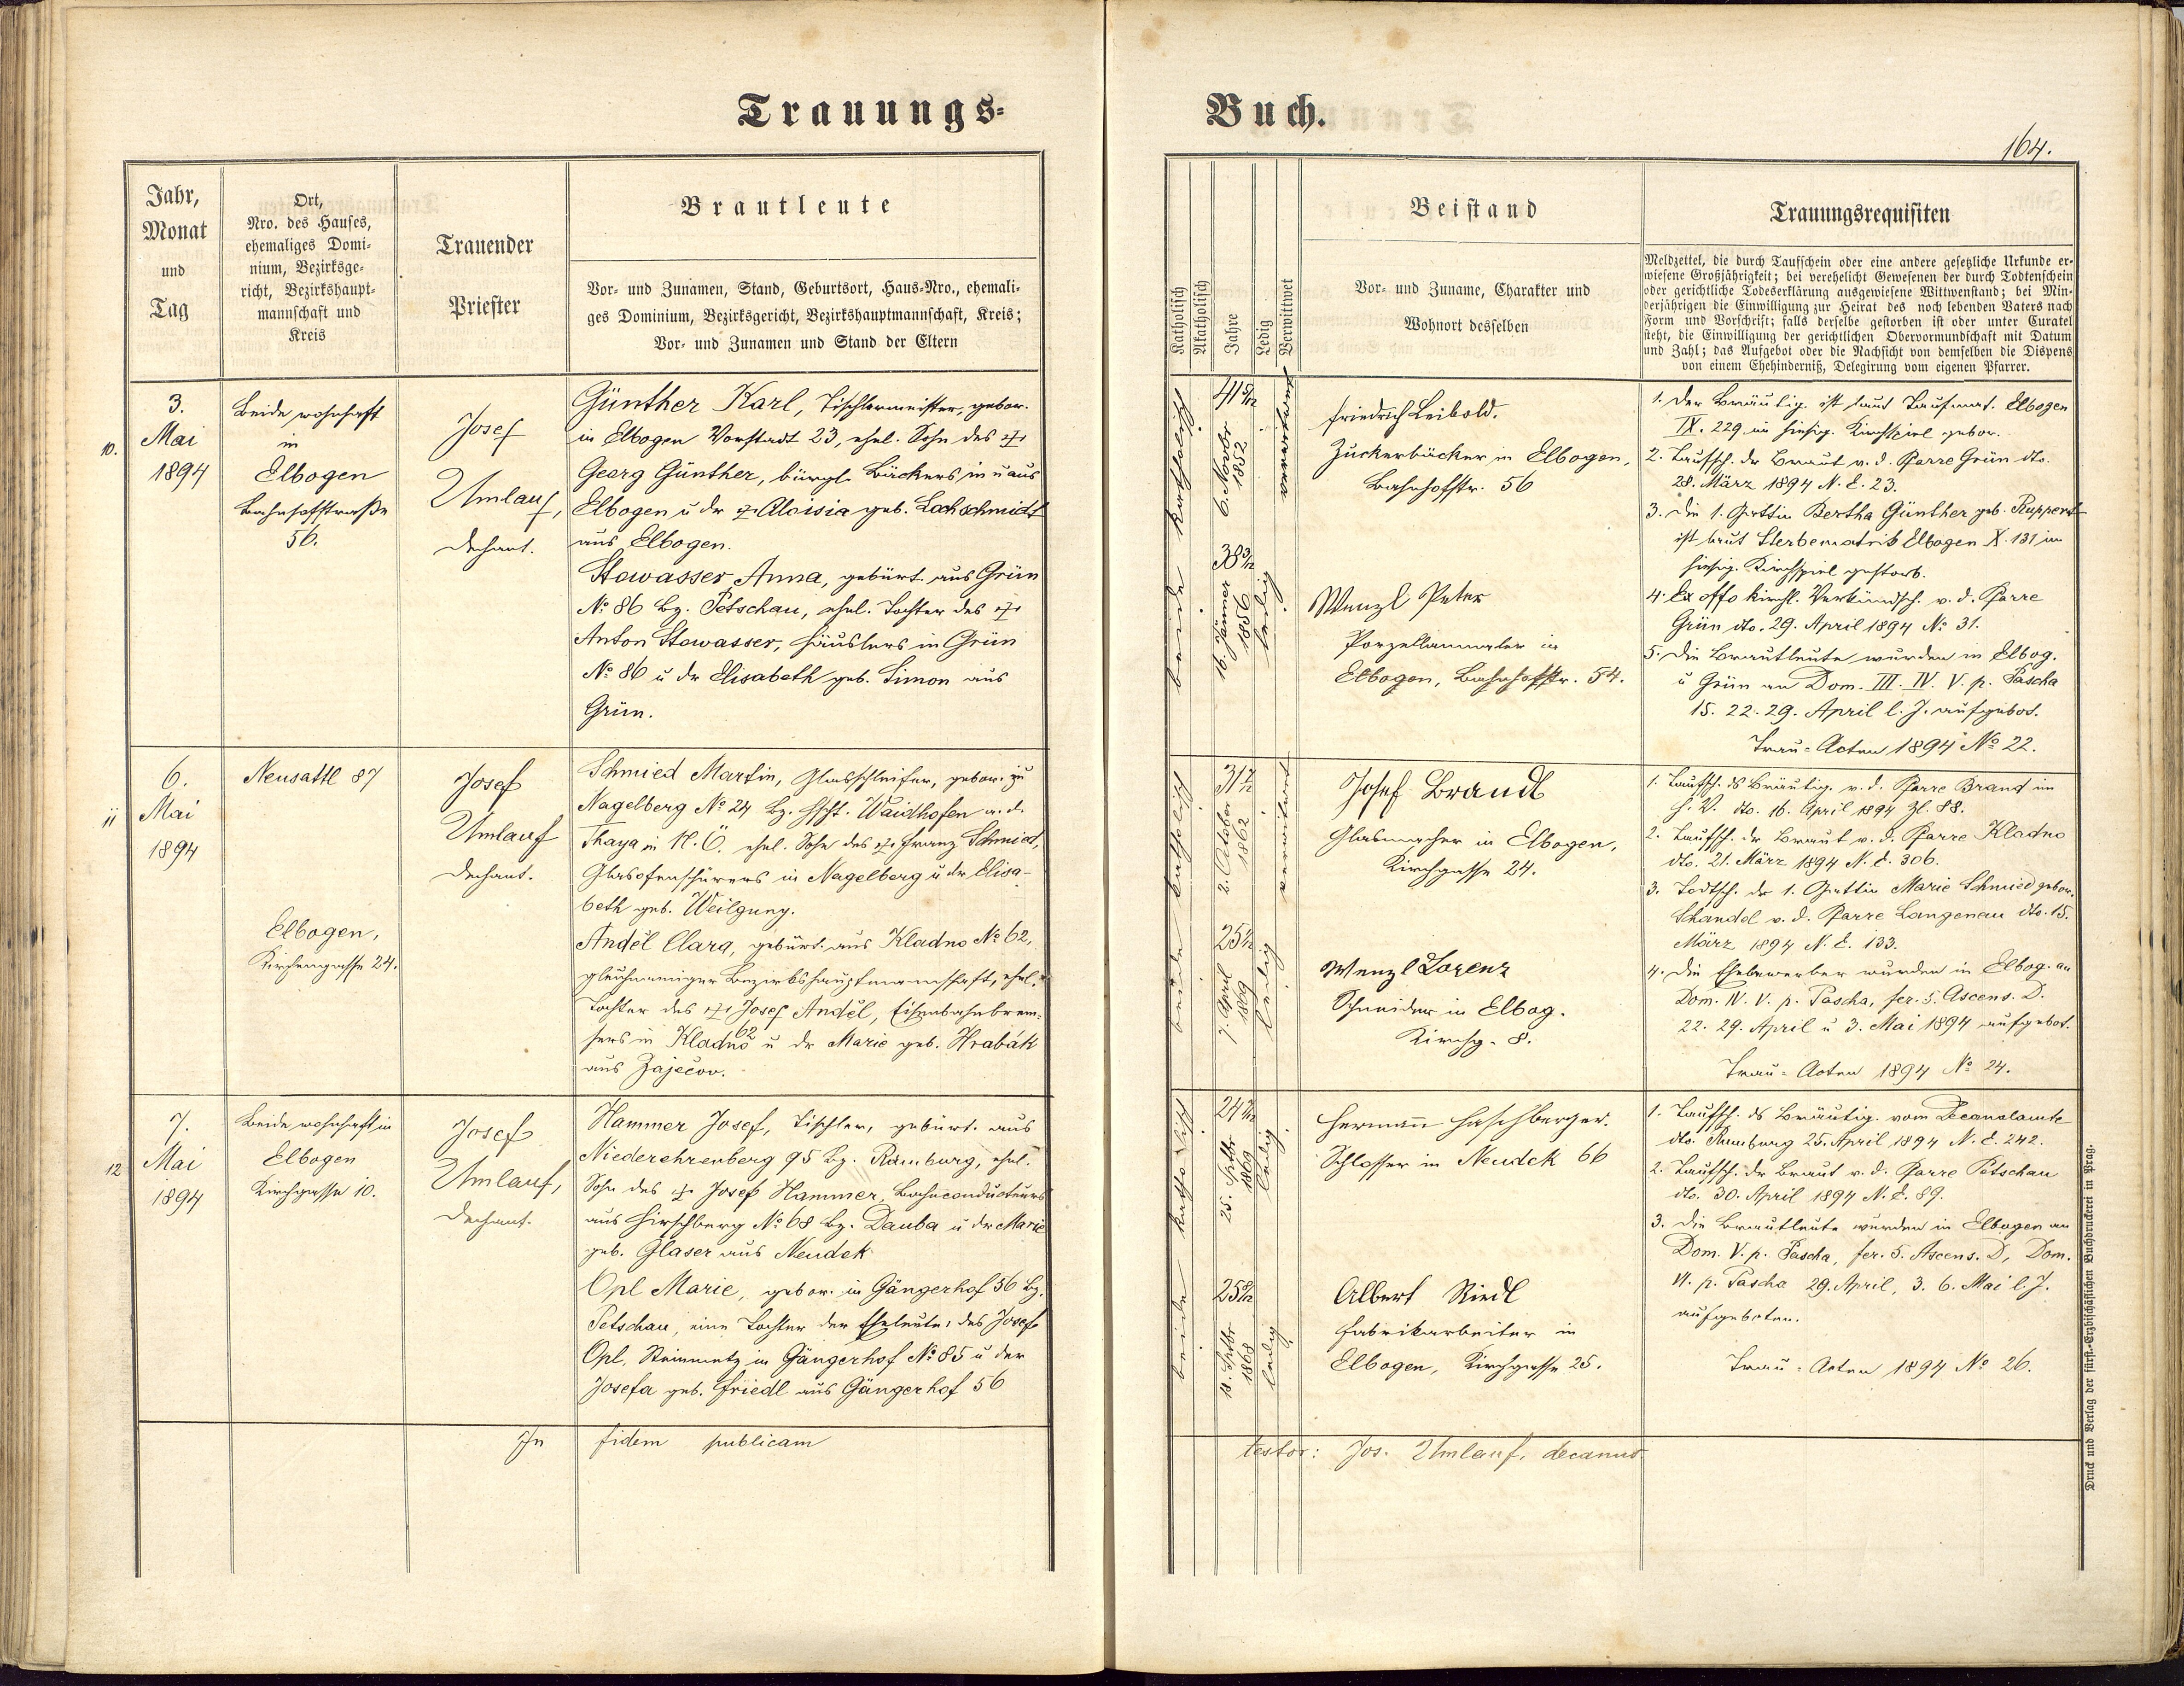 Trauungs=
Jahr,
Monat
und
Tag
Ort,
Nro. des Hauses,
ehemaliges Domi-
nium, Bezirksge-
richt, Bezirkshaupt-
mannschaft und
Kreis
Trauender
Priester
Brautleute
Vor- und Zunamen, Stand, Geburtsort, Haus-Nro., ehemali-
ges Dominium, Bezirksgericht, Bezirkshauptmannschaft, Kreis;
Vor- und Zunamen und Stand der Eltern
10.
3.
Mai
1894
Beide wohnhaft
in
Elbogen
Bahnhofstraße
56.
Josef
Umlauf,
Dechant.
Günther Karl, Tischlermeister, gebor.
in Elbogen Vorstadt 23, ehel. Sohn des †
Georg Günther, bürgl. Bäckers in u aus
Elbogen u der † Aloisia geb. Lochschmidt
aus Elbogen.
Stowasser Anna, gebürt. aus Grün
No 86 Bz. Petschau, ehel. Tochter des †
Anton Stowasser, Häuslers in Grün
No 86 u dr Elisabeth geb. Simon aus
Grün.
11
6.
Mai
1894
Neusattl 87
Elbogen,
Kirchengasse 24.
Josef
Umlauf
Dechant.
Schmied Martin, Glasschleifer, gebor. zu
Nagelberg No 24 Bz. Hptsch. Waidhofen a. d.
Thaya in N. Ö. ehel. Sohn des † Franz Schmied,
Glasofenschürers in Nagelberg u dr Elisa-
beth geb. Weilguny.
Anděl Clara, gebürt. aus Kladno No 62,
gleichnamiger Bezirkshauptmannschaft, ehel.
Tochter des † Josef Anděl, Eisenbahnbrem-
sers in Kladno 62 u dr Marie geb. Hrabák
aus Zaječov.
12
7.
Mai
1894
Beide wohnhaft in
Elbogen
Kirchgasse 10.
Josef
Umlauf,
Dechant.
Hammer Josef, Tischler, gebürt. aus
Niederehrenberg 95 Bz. Rumburg, ehel.
Sohn des † Josef Hammer, Bahnconducteurs
aus Hirschberg No 68 Bz. Dauba u dr Marie
geb. Glaser aus Neudek
Opl Marie, gebor. in Gängerhof 56 Bz.
Petschau, eine Tochter der Eheleute: des Josef
Opl, Steinmetz in Gängerhof No 85 u der
Josefa geb. Friedl aus Gängerhof 56
In fidem publicam
Buch.
164.
Katholisch
Akatholisch
Jahre
Ledig
Verwittwet
Beistand
Vor- und Zuname, Charakter und
Wohnort desselben
Trauungsrequisiten
Meldzettel, die durch Taufschein oder eine andere gesetzliche Urkunde er-
wiesene Großjährigkeit; bei verehelicht Gewesenen der durch Todtenschein
oder gerichtliche Todeserklärung ausgewiesene Wittwenstand; bei Min-
derjährigen die Einwilligung zur Heirat des noch lebenden Vaters nach
Form und Vorschrift; falls derselbe gestorben ist oder unter Curatel
steht, die Einwilligung der gerichtlichen Obervormundschaft mit Datum
und Zahl; das Aufgebot oder die Nachsicht von demselben die Dispens
von einem Ehehinderniß, Delegirung vom eigenen Pfarrer.
beide katholisch
41 5/12
6. Novbr
1852
verwitwet
38 3/12
16. Jänner
1856
ledig
Friedrich Leibold.
Zuckerbäcker in Elbogen,
Bahnhofstr. 56
Wenzl Peter
Porzellanmaler in
Elbogen, Bahnhofstr. 54.
1. Der Bräutig. ist laut Taufmat. Elbogen
IX. 229 im hiesig. Kirchspiel gebor.
2. Taufsch. dr Braut v. d. Pfarre Grün dto.
28. März 1894 N. E. 23.
3. Die 1. Gattin Bertha Günther geb. Ruppert
ist laut Sterbematrik Elbogen X. 131 im
hiesig. Kirchspiel gestorb.
4. Ex offo kirchl. Verkündsch. v. d. Pfarre
Grün dto. 29. April 1894 No 31.
5. Die Brautleute wurden in Elbog.
u Grün an Dom. III. IV. V. p. Pascha
15. 22. 29. April l. J. aufgebot.
Trau-Acten 1894 No 22.
beide katholisch
31 7/12
2. October
1862
verwitwet
25 1/12
7. April
1869
ledig
Josef Brandl
Glasmacher in Elbogen,
Kirchgasse 24.
Wenzl Lorenz
Schneider in Elbog.
Kirchg. 8.
1. Taufsch. ds Bräutig. v. d. Pfarre Brand im
dto. 16. April 1894 Zl. 88.
2. Taufsch. dr Braut v. d. Pfarre Kladno
dto. 21. März 1894 N. E. 306.
3. Todtsch. dr 1. Gattin Marie Schmied gebor.
Schandel v. d. Pfarre Langenau dto. 15.
März 1894 N. E. 133.
4. Die Ehebewerber wurden in Elbog. an
Dom. IV. V. p. Pascha, fer. 5. Ascens. D.
22. 29. April u 3. Mai 1894 aufgebot.
Trau-Acten 1894 No 24.
beide katholisch
24 7/12
25. Sptbr
1869
ledig
25 8/12
18. Sptbr
1868
ledig
Hermann Haschberger.
Schlosser in Neudek 66
Albert Riedl
Fabrikarbeiter in
Elbogen, Kirchgasse 25.
1. Taufsch. ds Bräutig. vom Decanalamte
dto. Rumburg 25. April 1894 N. E. 242.
2. Taufsch. dr Braut v. d. Pfarre Petschau
dto. 30. April 1894 N. E. 89.
3. Die Brautleute wurden in Elbogen an
Dom. V. p. Pascha, fer. 5. Ascens. D, Dom.
VI. p. Pascha 29. April, 3. 6. Mai l. J.
aufgeboten.
Trau-Acten 1894 No 26.
testor: Jos. Umlauf, decanus.
Druck und Verlag der fürst.-Erzbischöflichen Buchdruckerei in Prag.